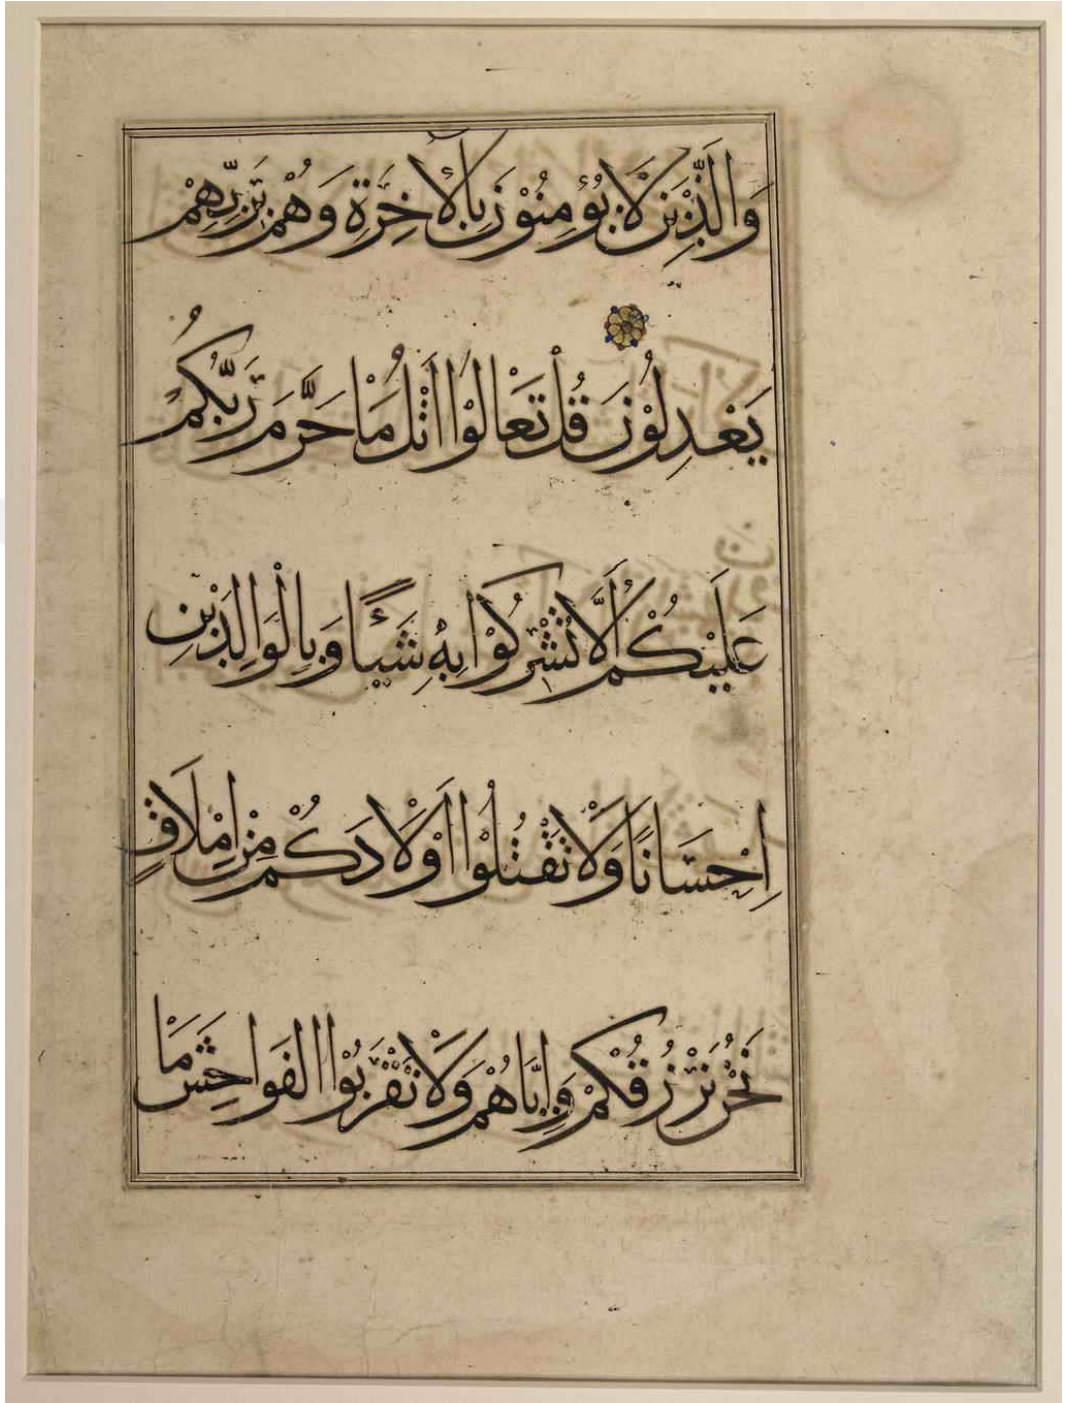 وَالَّذِينَ لَا يُؤْمِنُونَ بِالْآخِرَةِ وَهُمْ بِرَبِّهِمْ
يَعْدِلُونَ قُلْ تَعَالَوْا أَتْلُ مَا حَرَّمَ رَبُّكُمْ
عَلَيْكُمْ أَلَّا تُشْرِكُوا بِهِ شَيْئًا وَبِالْوَالِدَيْنِ
إِحْسَانًا وَلَا تَقْتُلُوا أَوْلَادَكُمْ مِنْ إِمْلَاقٍ
نَحْنُ نَرْزُقُكُمْ وَإِيَّاهُمْ وَلَا تَقْرَبُوا الْفَوَاحِشَ مَا